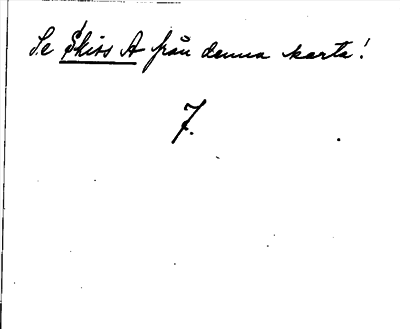 Se Skiss A från denna karta!
7.